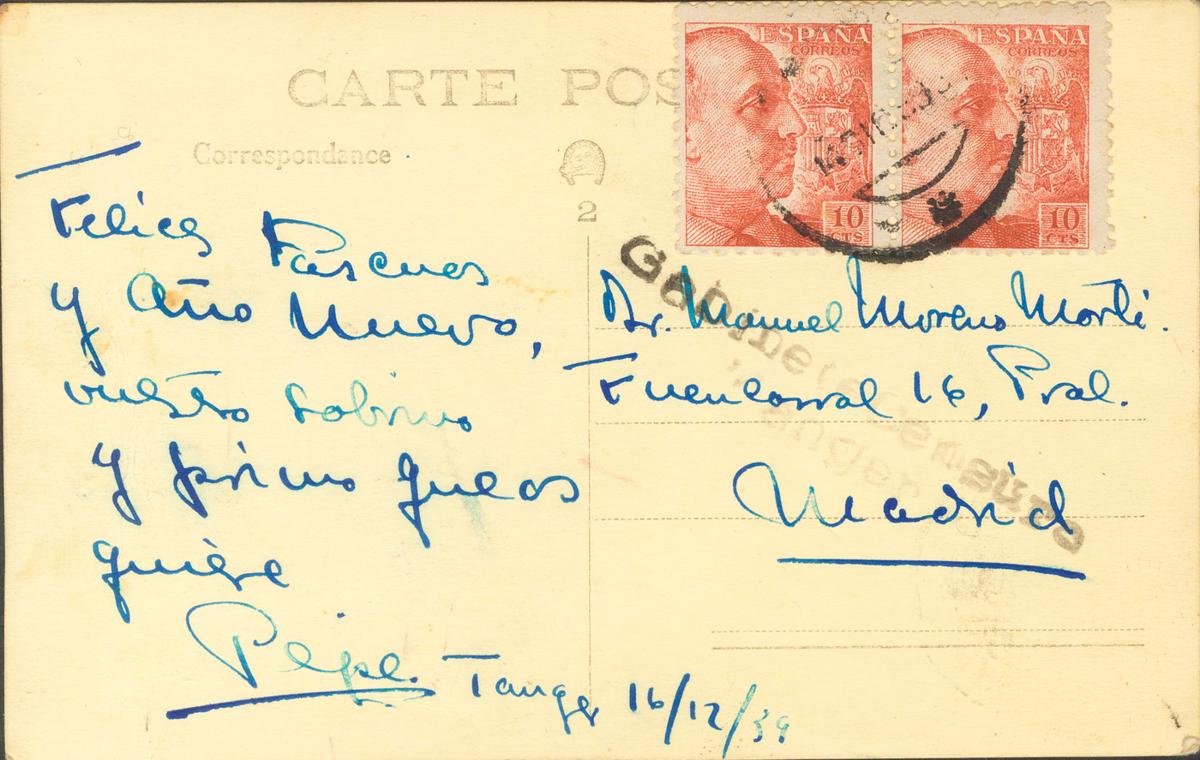 CARTE POS
Correspondance
2
ESPAÑA
CORREOS
10
CTS
ESPAÑA
CORREOS
10
CTS
Felices Pascuas
y Año Nuevo,
vuestro sobrino
y primo que os
quiere
Pepe.
Tanger 16/12/39
Gabinete Censura
Tanger
Dr. Manuel Moreno Martí.
Fuencarral 16, Pral.
Madrid